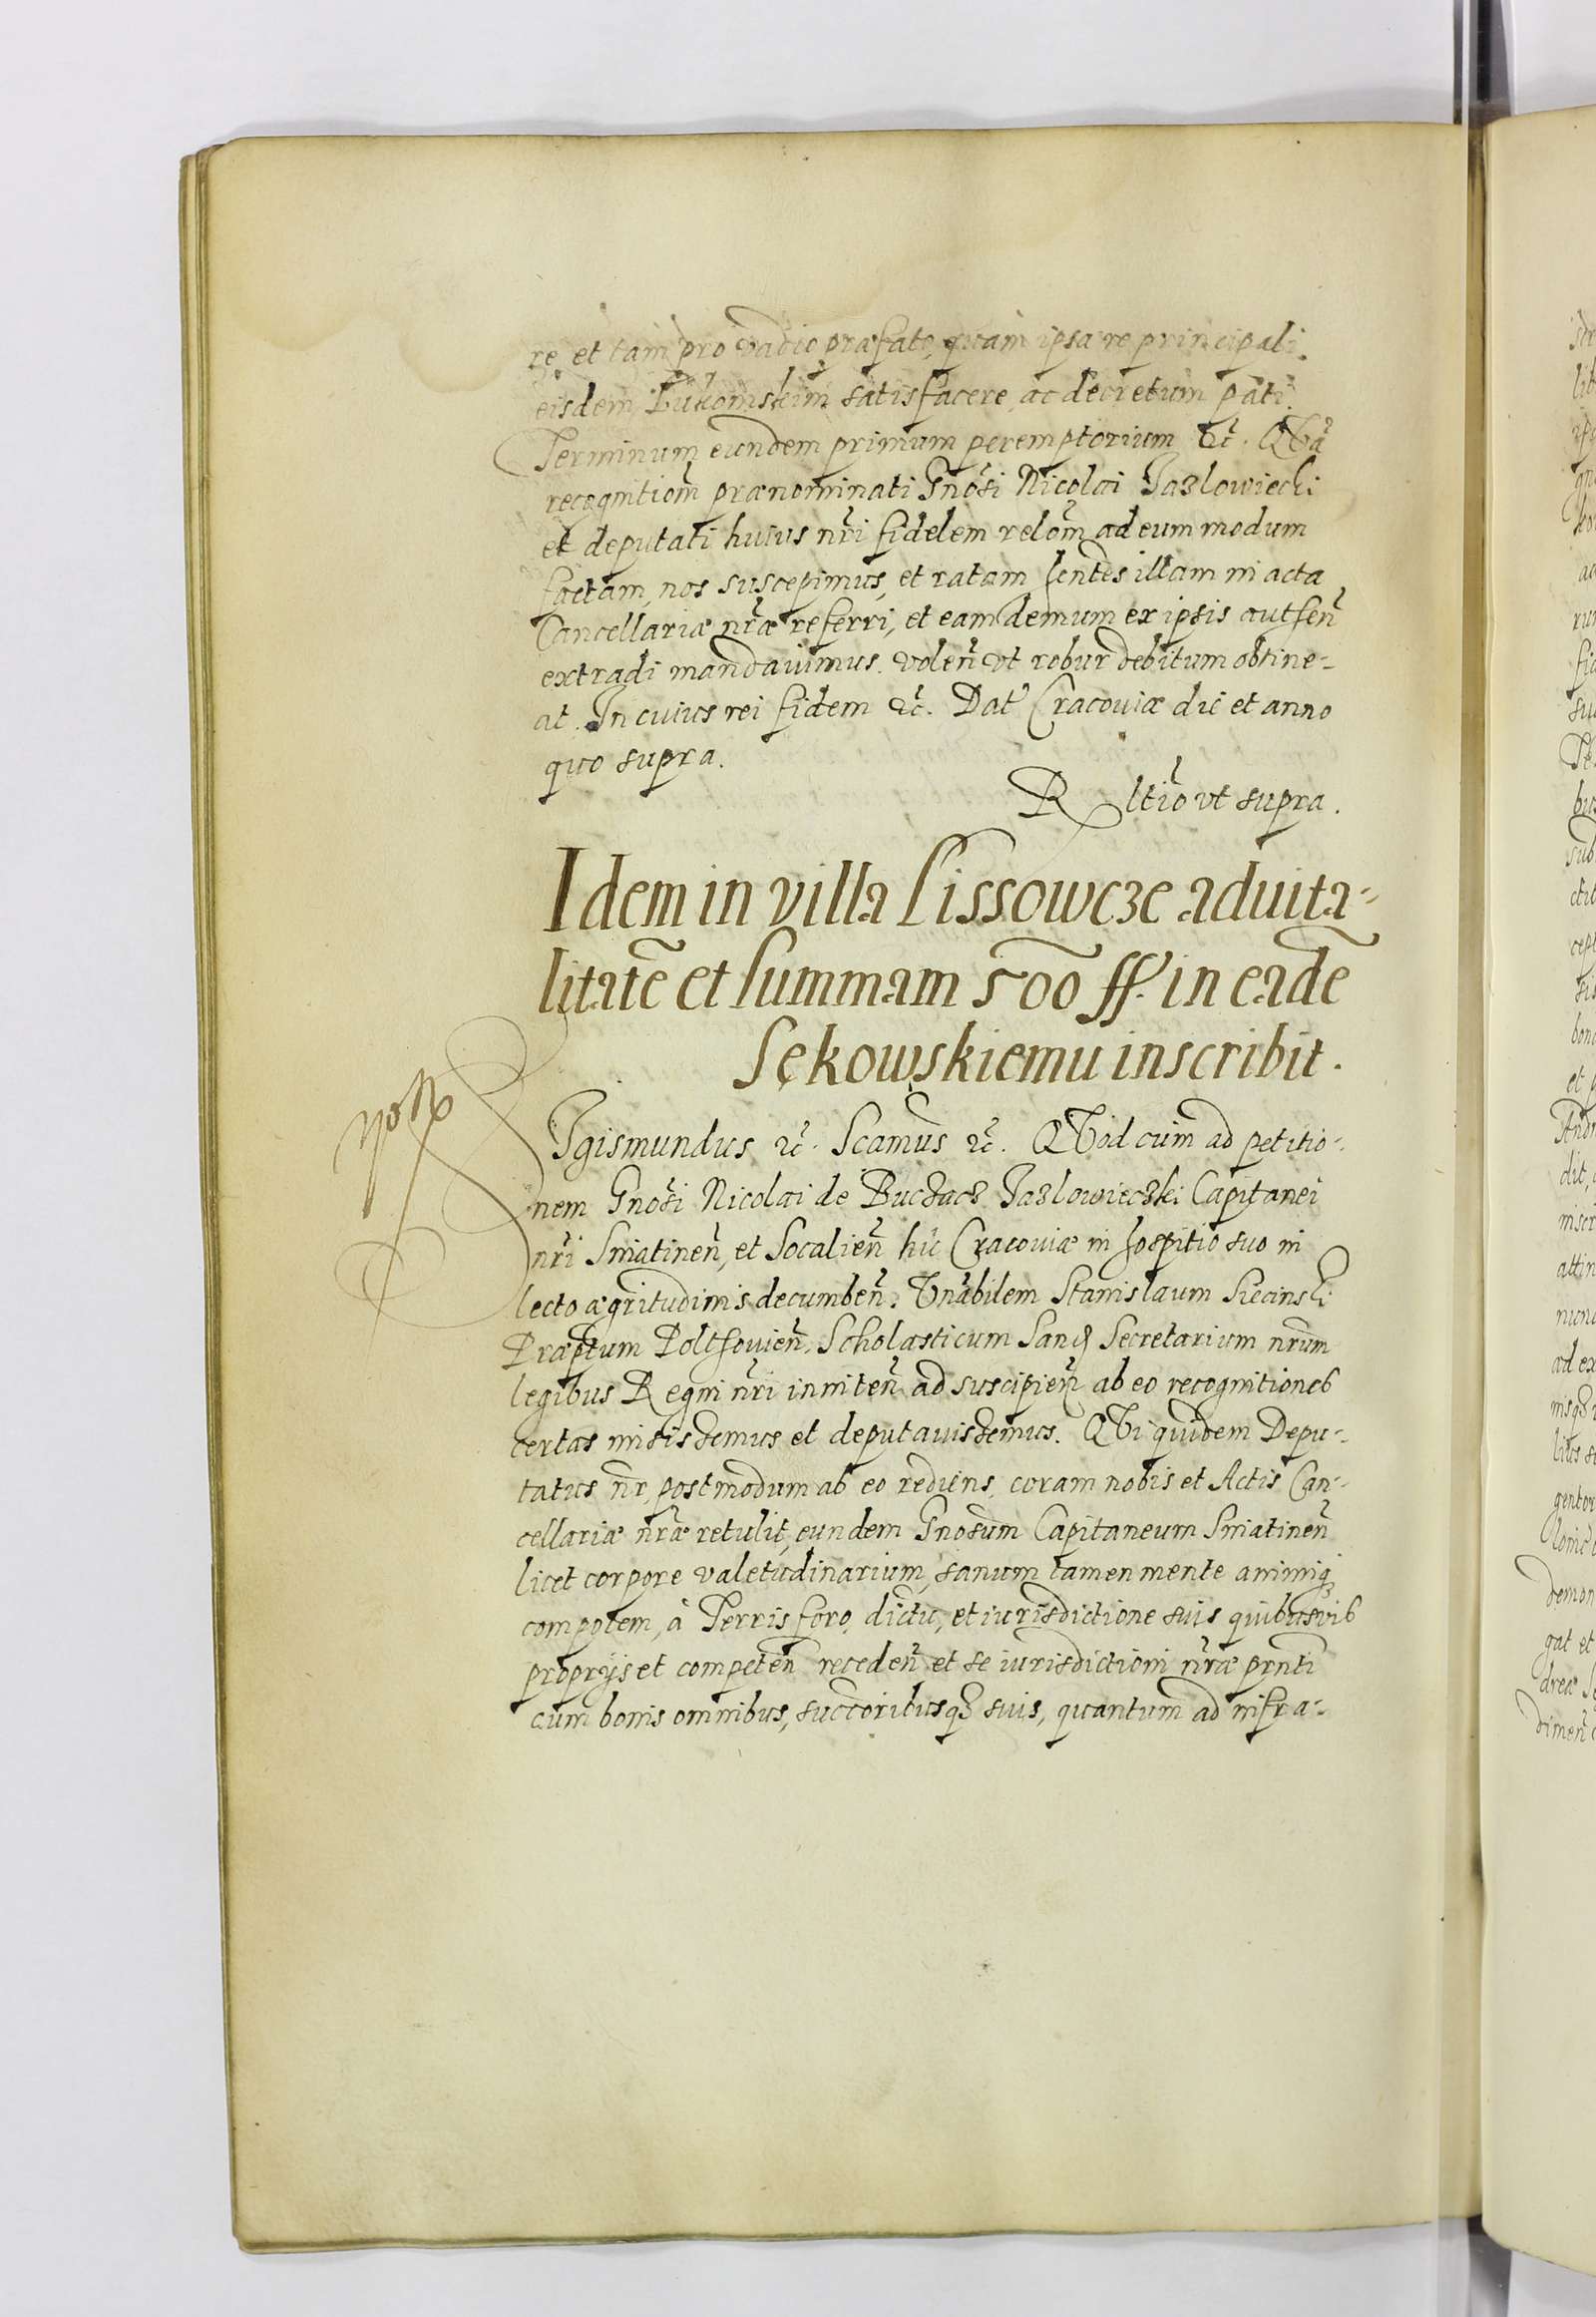 re, et tam pro vadio præfato, quam ipsa re principali
eisdem Bukomskim satisfacere, ac decretum pati.
Terminum eundem primum peremptorium &c. QVā
recognitiom̃ prænominati Gnosi Nicolai Jazlowiecki
et deputati huius nri fidelem relom̃ ad eum modum
factam, nos suscepimus, et ratam hentes illam in acta
Cancellariæ nræ referri, et eam demum ex ipsis autheñ
extradi mandavimus. voleñ vt robur debitum obtine-
at. In cuius rei fidem &c. Dat Cracoviæ die et anno
quo supra.
R ltio vt supra.
Idem in villa Lissowcze advita-
litatē et summam 500 ff. in eadē
Sękowskiemu inscribit.
Sigismundus &c. Scamus &c. QVod cum ad petitio-
nem Gnosi Nicolai de Buczacz Jazlowieczki Capitanei
nri Sniatineñ, et Socalieñ hic Cracoviæ in hospitio suo in
lecto ægritudinis decumbeñ. Vnabilem Stanislaum Siecinski
Præptum Poltovieñ, Scholasticum Sanoc Secretarium nrum
legibus Regni nri inniteñ ad suscipieñ ab eo recognitiones
certas misissemus et deputavissemus. QVi quidem Depu-
tatus nr, postmodum ab eo rediens, coram nobis et Actis Can-
cellariæ nræ retulit, eundem Gnosum Capitaneum Sniatineñ
licet corpore valetudinarium, sanum tamen mente animiq3
compotem, à Terris foro, dictu, et iurisdictione suis quibusvis
proprijs et competeñ recedeñ et se iurisdictioni nræ prnti
cum bonis omnibus, succoribusq3 suis, quantum ad infra-